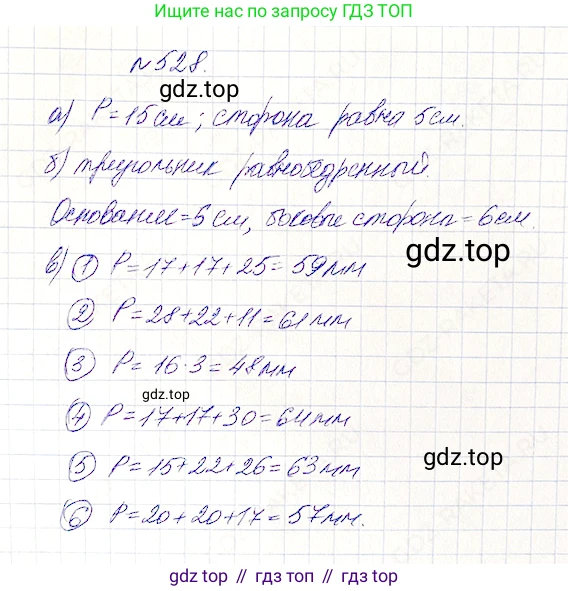 Ищите нас по запросу ГДЗ ТОП
N 528.
gdz.top
а) P = 15 см; сторона равна 5 см.
б) треугольник равнобедренный.
Основание = 5 см, боковые сторона = 6 см.
gdz.top
в) 1 P = 17 + 17 + 25 = 59 мм
2 P = 28 + 22 + 11 = 61 мм
3 P = 16 · 3 = 48 мм
gdz.top
4 P = 17 + 17 + 30 = 64 мм
5 P = 15 + 22 + 26 = 63 мм
gdz.top
6 P = 20 + 20 + 17 = 57 мм.
gdz top // гдз топ // гдз.топ